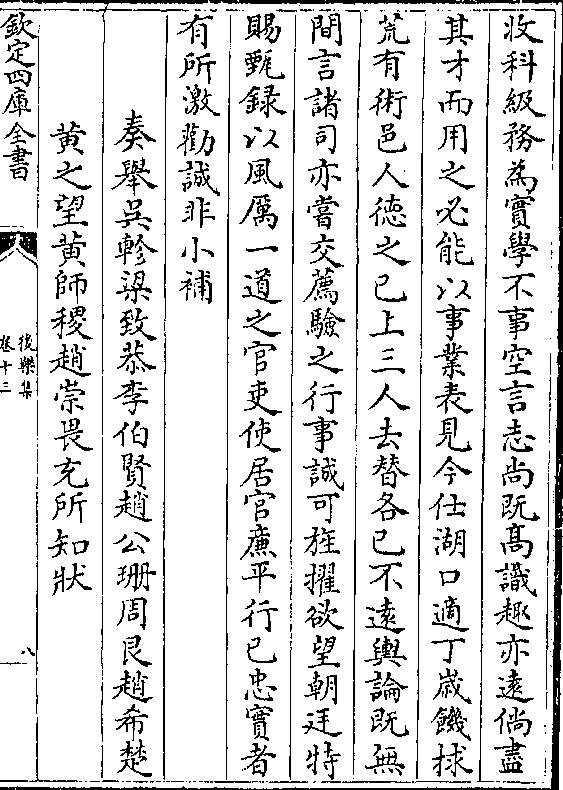 收科級務為實學不事空言志尚既髙識趣亦逺倘盡
其才而用之必能以事業表見今仕湖口適丁嵗饑捄
荒有術邑人徳之已上三人去替各已不逺輿論既無
間言諸司亦嘗交薦驗之行事誠可旌擢欲望朝廷特
賜甄録以風厲一道之官吏使居官亷平行已忠實者
有所激勸誠非小補
奏舉吳軫梁致恭李伯賢趙公珊周艮趙希楚
黄之望黄師稷趙崇畏充所知狀
欽定四庫全書
後樂集
卷十三
八